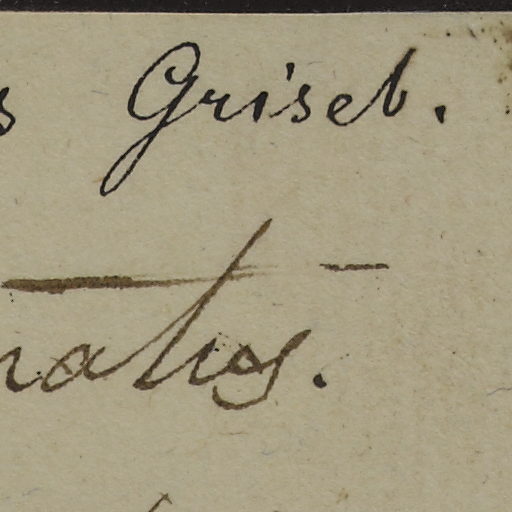 s Griseb.
natus.